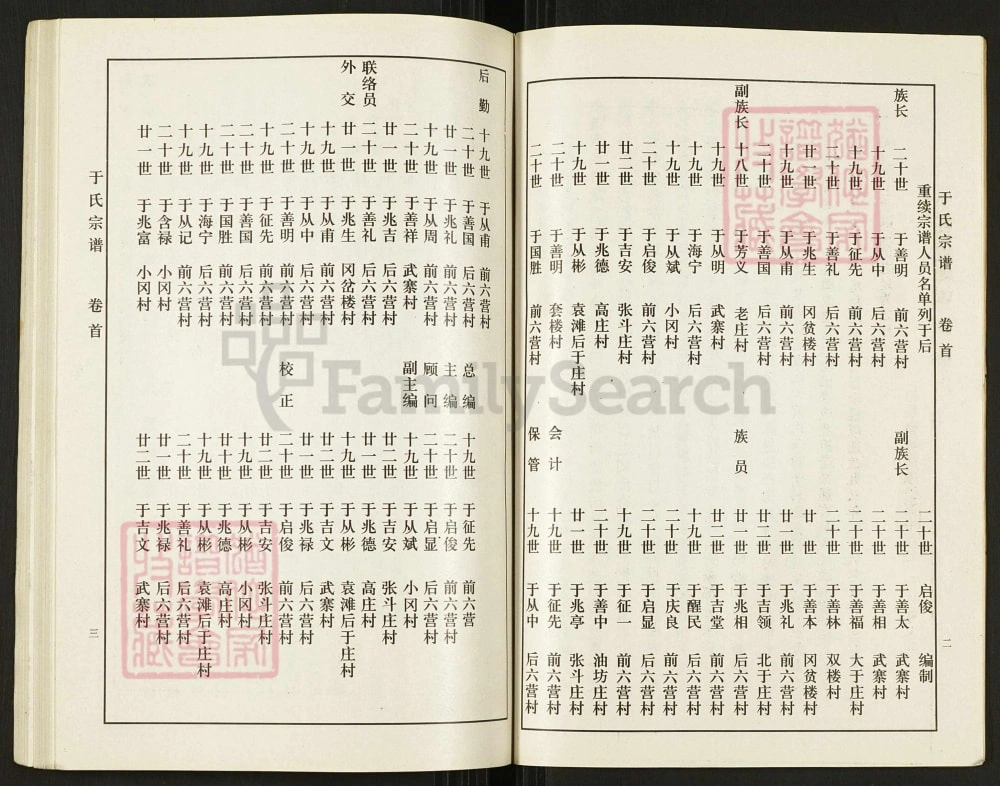 于氏宗谱 卷首 二
重续宗谱人员名单列于后 二十世 启俊 编制
族长 二十世 于善明 前六营村
十九世 于从中 后六营村
十九世 于征先 前六营村
二十世 于善礼 后六营村
廿一世 于兆生 冈贫楼村
十九世 于从甫 前六营村
二十世 于善国 后六营村
副族长 十八世 于芳义 老庄村
十九世 于从明 武寨村
十九世 于海宁 后六营村
十九世 于从斌 小冈村
二十世 于启俊 前六营村
廿二世 于吉安 张斗庄村
廿一世 于兆德 高庄村
十九世 于从彬 袁滩后于庄村
二十世 于善明 套楼村
二十世 于国胜 前六营村
副族长 二十世 于善太 武寨村
二十世 于善相 武寨村
二十世 于善福 大于庄村
二十世 于善林 双楼村
廿世 于善本 冈贫楼村
廿一世 于兆礼 前六营村
廿二世 于吉领 北于庄村
族员 廿一世 于兆相 后六营村
廿二世 于吉堂 前六营村
十九世 于醒民 后六营村
二十世 于庆良 前六营村
二十世 于启显 后六营村
十九世 于征一 前六营村
二十世 于善中 油坊庄村
廿一世 于兆亭 张斗庄村
会计 十九世 于征先 前六营村
保管 十九世 于从中 后六营村
后勤 十九世 于从甫 前六营村
二十世 于善国 后六营村
廿一世 于兆礼 前六营村
十九世 于从周 前六营村
二十世 于善祥 武寨村
廿一世 于兆吉 后六营村
联络员 二十世 于善礼 后六营村
外交 廿一世 于兆生 冈岔楼村
十九世 于从甫 前六营村
十九世 于从中 后六营村
二十世 于善明 前六营村
十九世 于征先 前六营村
二十世 于善国 后六营村
二十世 于国胜 前六营村
十九世 于海宁 后六营村
十九世 于从记 前六营村
二十世 于含禄 小冈村
廿一世 于兆富 小冈村
总编 十九世 于征先 前六营
主编 二十世 于启俊 前六营村
顾问 二十世 于启显 后六营村
副主编 十九世 于从斌 小冈村
廿二世 于吉安 张斗庄村
廿一世 于兆德 高庄村
十九世 于从彬 袁滩后于庄村
廿二世 于吉文 武寨村
廿一世 于兆禄 后六营村
校正 二十世 于启俊 前六营村
廿二世 于吉安 张斗庄村
十九世 于从彬 小冈村
廿十世 于兆德 高庄村
十九世 于从彬 袁滩后于庄村
二十世 于善礼 后六营村
廿一世 于兆禄 后六营村
廿二世 于吉文 武寨村
于氏宗谱 卷首 三
FamilySearch